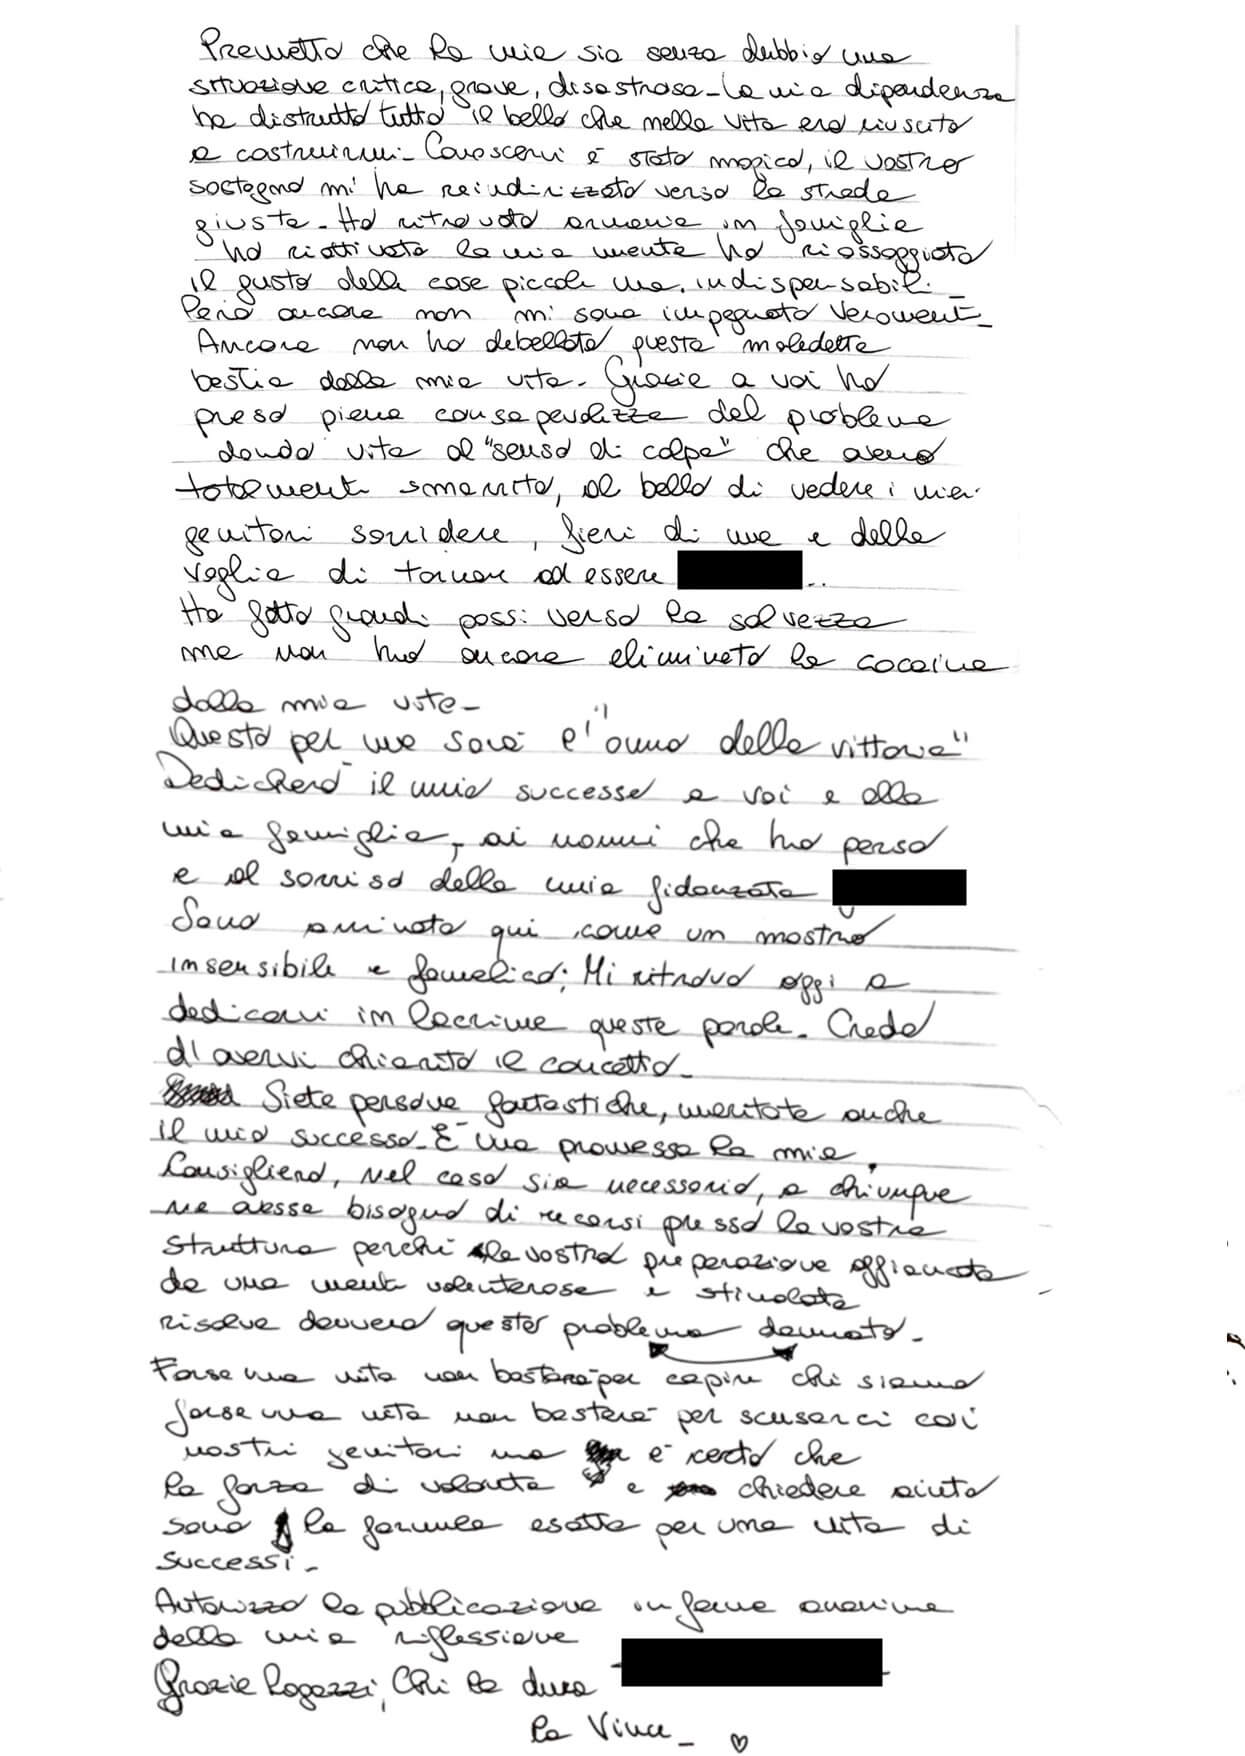 Premetto che la mia sia senza dubbio una
situazione critica, grave, disastrosa - La mia dipendenza
ha distrutto tutto il bello che nella vita ero riuscito
a costruirmi - Conoscervi è stato magico, il vostro
sostegno mi ha reindirizzato verso la strada
giusta - Ho ritrovato armonia in famiglia
ho riattivato la mia mente ho riassaggiato
il gusto delle cose piccole ma indispensabili -
Però ancora non mi sono impegnato veramente -
Ancora non ho debellato questa maledetta
bestia dalla mia vita - Grazie a voi ho
preso piena consapevolezza del problema
dando vita al "senso di colpa" che avevo
totalmente smarrito, al bello di vedere i miei
genitori sorridere, fieri di me e della
voglia di tornare ad essere ..
Ho fatto grandi passi verso la salvezza
ma non ho ancora eliminato la cocaina
dalla mia vita -
Questo per me sarà l'"anno della vittoria"
Dedicherò il mio successo a voi e alla
mia famiglia, ai nonni che ho perso
e al sorriso della mia fidanzata
Sono arrivato qui come un mostro
insensibile e famelico; Mi ritrovo oggi a
dedicarvi in lacrime queste parole. Credo
d'avervi chiarito il concetto -
Siete persone fantastiche, meritate anche
il mio successo - È una promessa la mia.
Consiglierò, nel caso sia necessario, a chiunque
ne avesse bisogno di recarsi presso la vostra
struttura perchè la vostra preparazione affiancata
da una mente volenterosa e stimolata
risolve davvero questo problema dannato -
Forse una vita non basterà per capire chi siamo
forse una vita non basterà per scusarci coi
nostri genitori ma è certo che
la forza di volontà e chiedere aiuto
sono la formula esatta per una vita di
successi -
Autorizzo la pubblicazione in forma anonima
della mia riflessione
Grazie Ragazzi, Chi la dura
la Vince - ♡